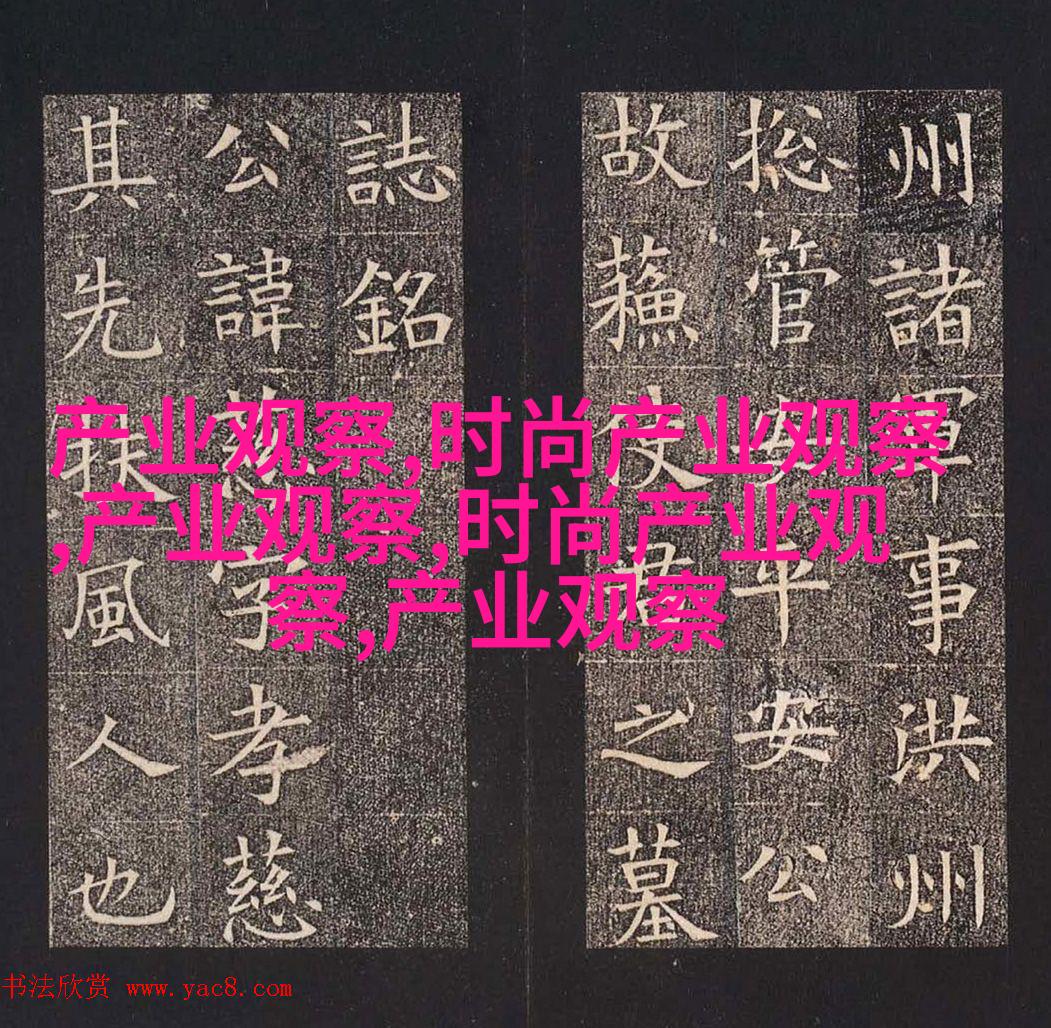 州諸軍事洪州
捴管安平安公
故蘓使君之墓
誌銘
公諱慈字孝慈
其先扶風人也
产业观察,时尚产业观察
,产业观察,时尚产业观
察,产业观察
书法欣赏 www.yac8.com